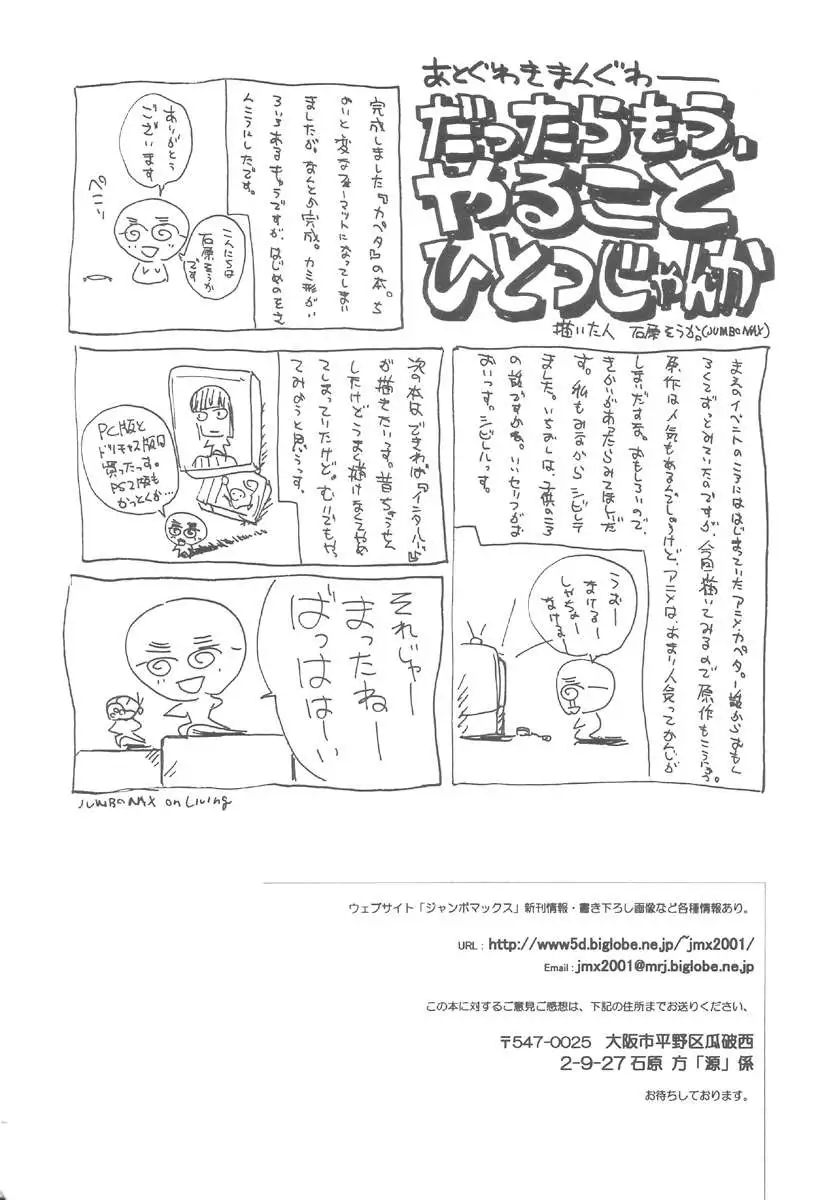 あとぐわきまんぐわー
だったらもう、
やること
ひとつじゃんか
描いた人 石原そうか。(JUMBO MAX)
完成しました『カペタ』の本。ち
ょいと変なフォーマットになってしまい
ましたが。なんとか完成。カミ形がい
ろいろあるキャラですが、はじめのをさ
んこうにしたです。
ありがとう
ございます
こんにちは
石原そうか
です
ぺこーり
まえのイベントのころにははじまっていたアニメ・カペタ。一話からおもし
ろくてずっとみていたのですが、今回描いてみるので原作もこうにゅう。
原作は人気もあるんでしょうけど、アニメは、あまり人気ってかんじが
しまいだすな。おもしろいので、
きかいがあったらみてほしいだ
す。私もみながらシビレテ
ました。いちおしは、子供のころ
の話ですかね。いいセリフがお
おいっす。シビレルっす。
うおー
まけるー
しゃちょー
なけるー
次の本は、できれば『インタールード』
が描きたいっす。昔ちょうせん
したけどうまく描けなくてやめ
てしまっていたけど。むりでもやっ
てみようと思うっす。
PC版と
ドリキャス版は
買ったっす。
PS2版も
かっとくか…
それじゃー
まったねー
ばっはは〜い
JUMBO MAX on Living
ウェブサイト「ジャンボマックス」新刊情報・書き下ろし画像など各種情報あり。
URL : http://www5d.biglobe.ne.jp/~jmx2001/
Email : jmx2001@mrj.biglobe.ne.jp
この本に対するご意見ご感想は、下記の住所までお送りください、
〒547-0025 大阪市平野区瓜破西
2-9-27 石原 方「源」係
お待ちしております。